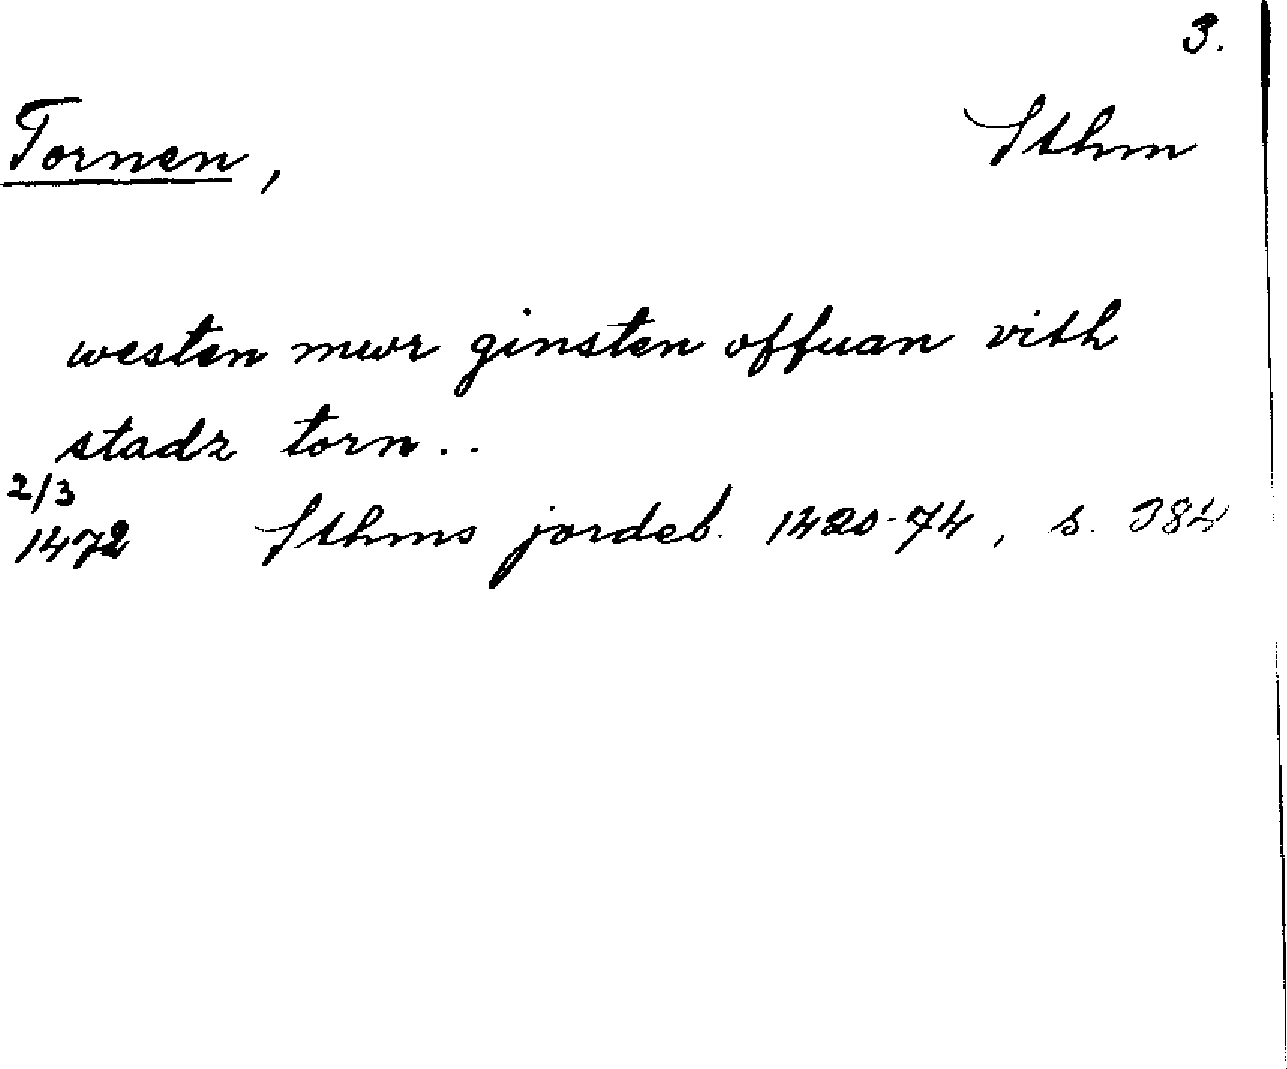 3.
Tornen, Sthm
westen mwr ginsten offuan vith
stadz torn..
2/3
1472 Sthms jordeb. 1420-74, s. 384